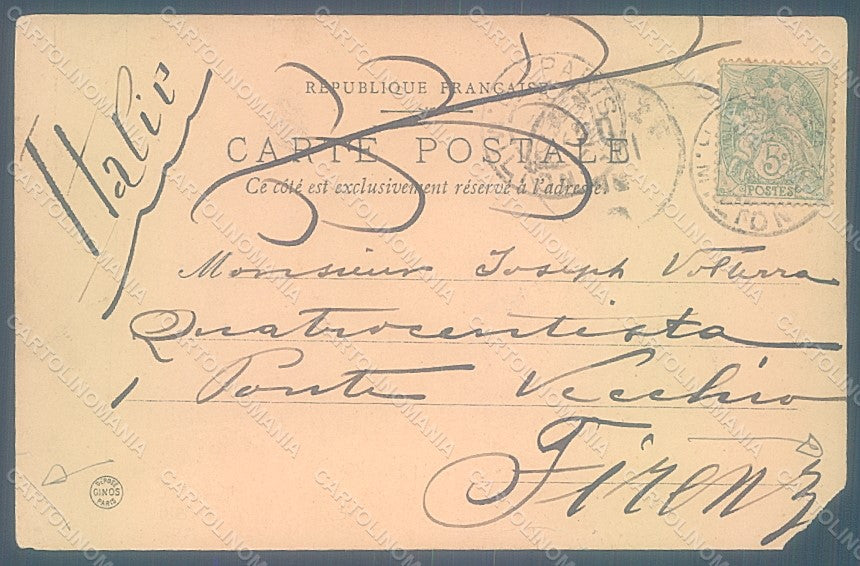 Italie
RÉPUBLIQUE FRANÇAISE
CARTE POSTALE
Ce côté est exclusivement réservé à l'adresse
PARIS
5c
POSTES
Monsieur Joseph Volterra
Quatrocentista
1 Ponte Vecchio
Firenz
DÉPOSÉ
GINOS
PARIS
CARTOLINOMANIA